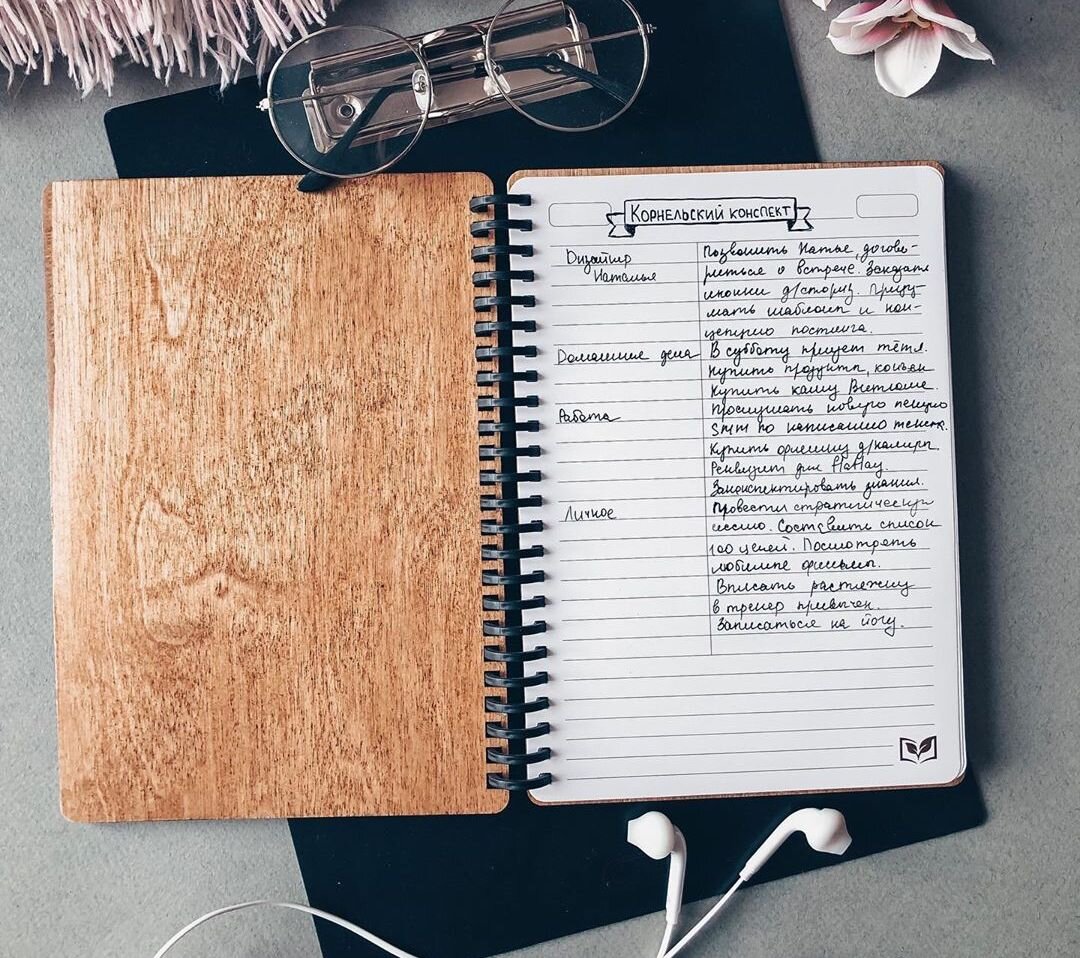 Корнельский конспект
Дизайнер
Наталья
Позвонить Натье, догово-
риться о встрече. Заказать
иконки д/сториз. Приду-
мать шаблон и кон-
цепцию постинга.
Домашние дела
В субботу приедет тётя.
Купить продукты, коньяк
Купить кашу Виталине.
Работа
Прослушать новую лекцию
SMM по написанию текста.
Купить флешку д/калигр.
Реквизит для flatlay.
Законспектировать знания.
Личное
Провести стратегическую
сессию. Составить список
100 целей. Посмотреть
любимые фильмы.
Вписать растяжку
в трекер привычек.
Записаться на йогу.